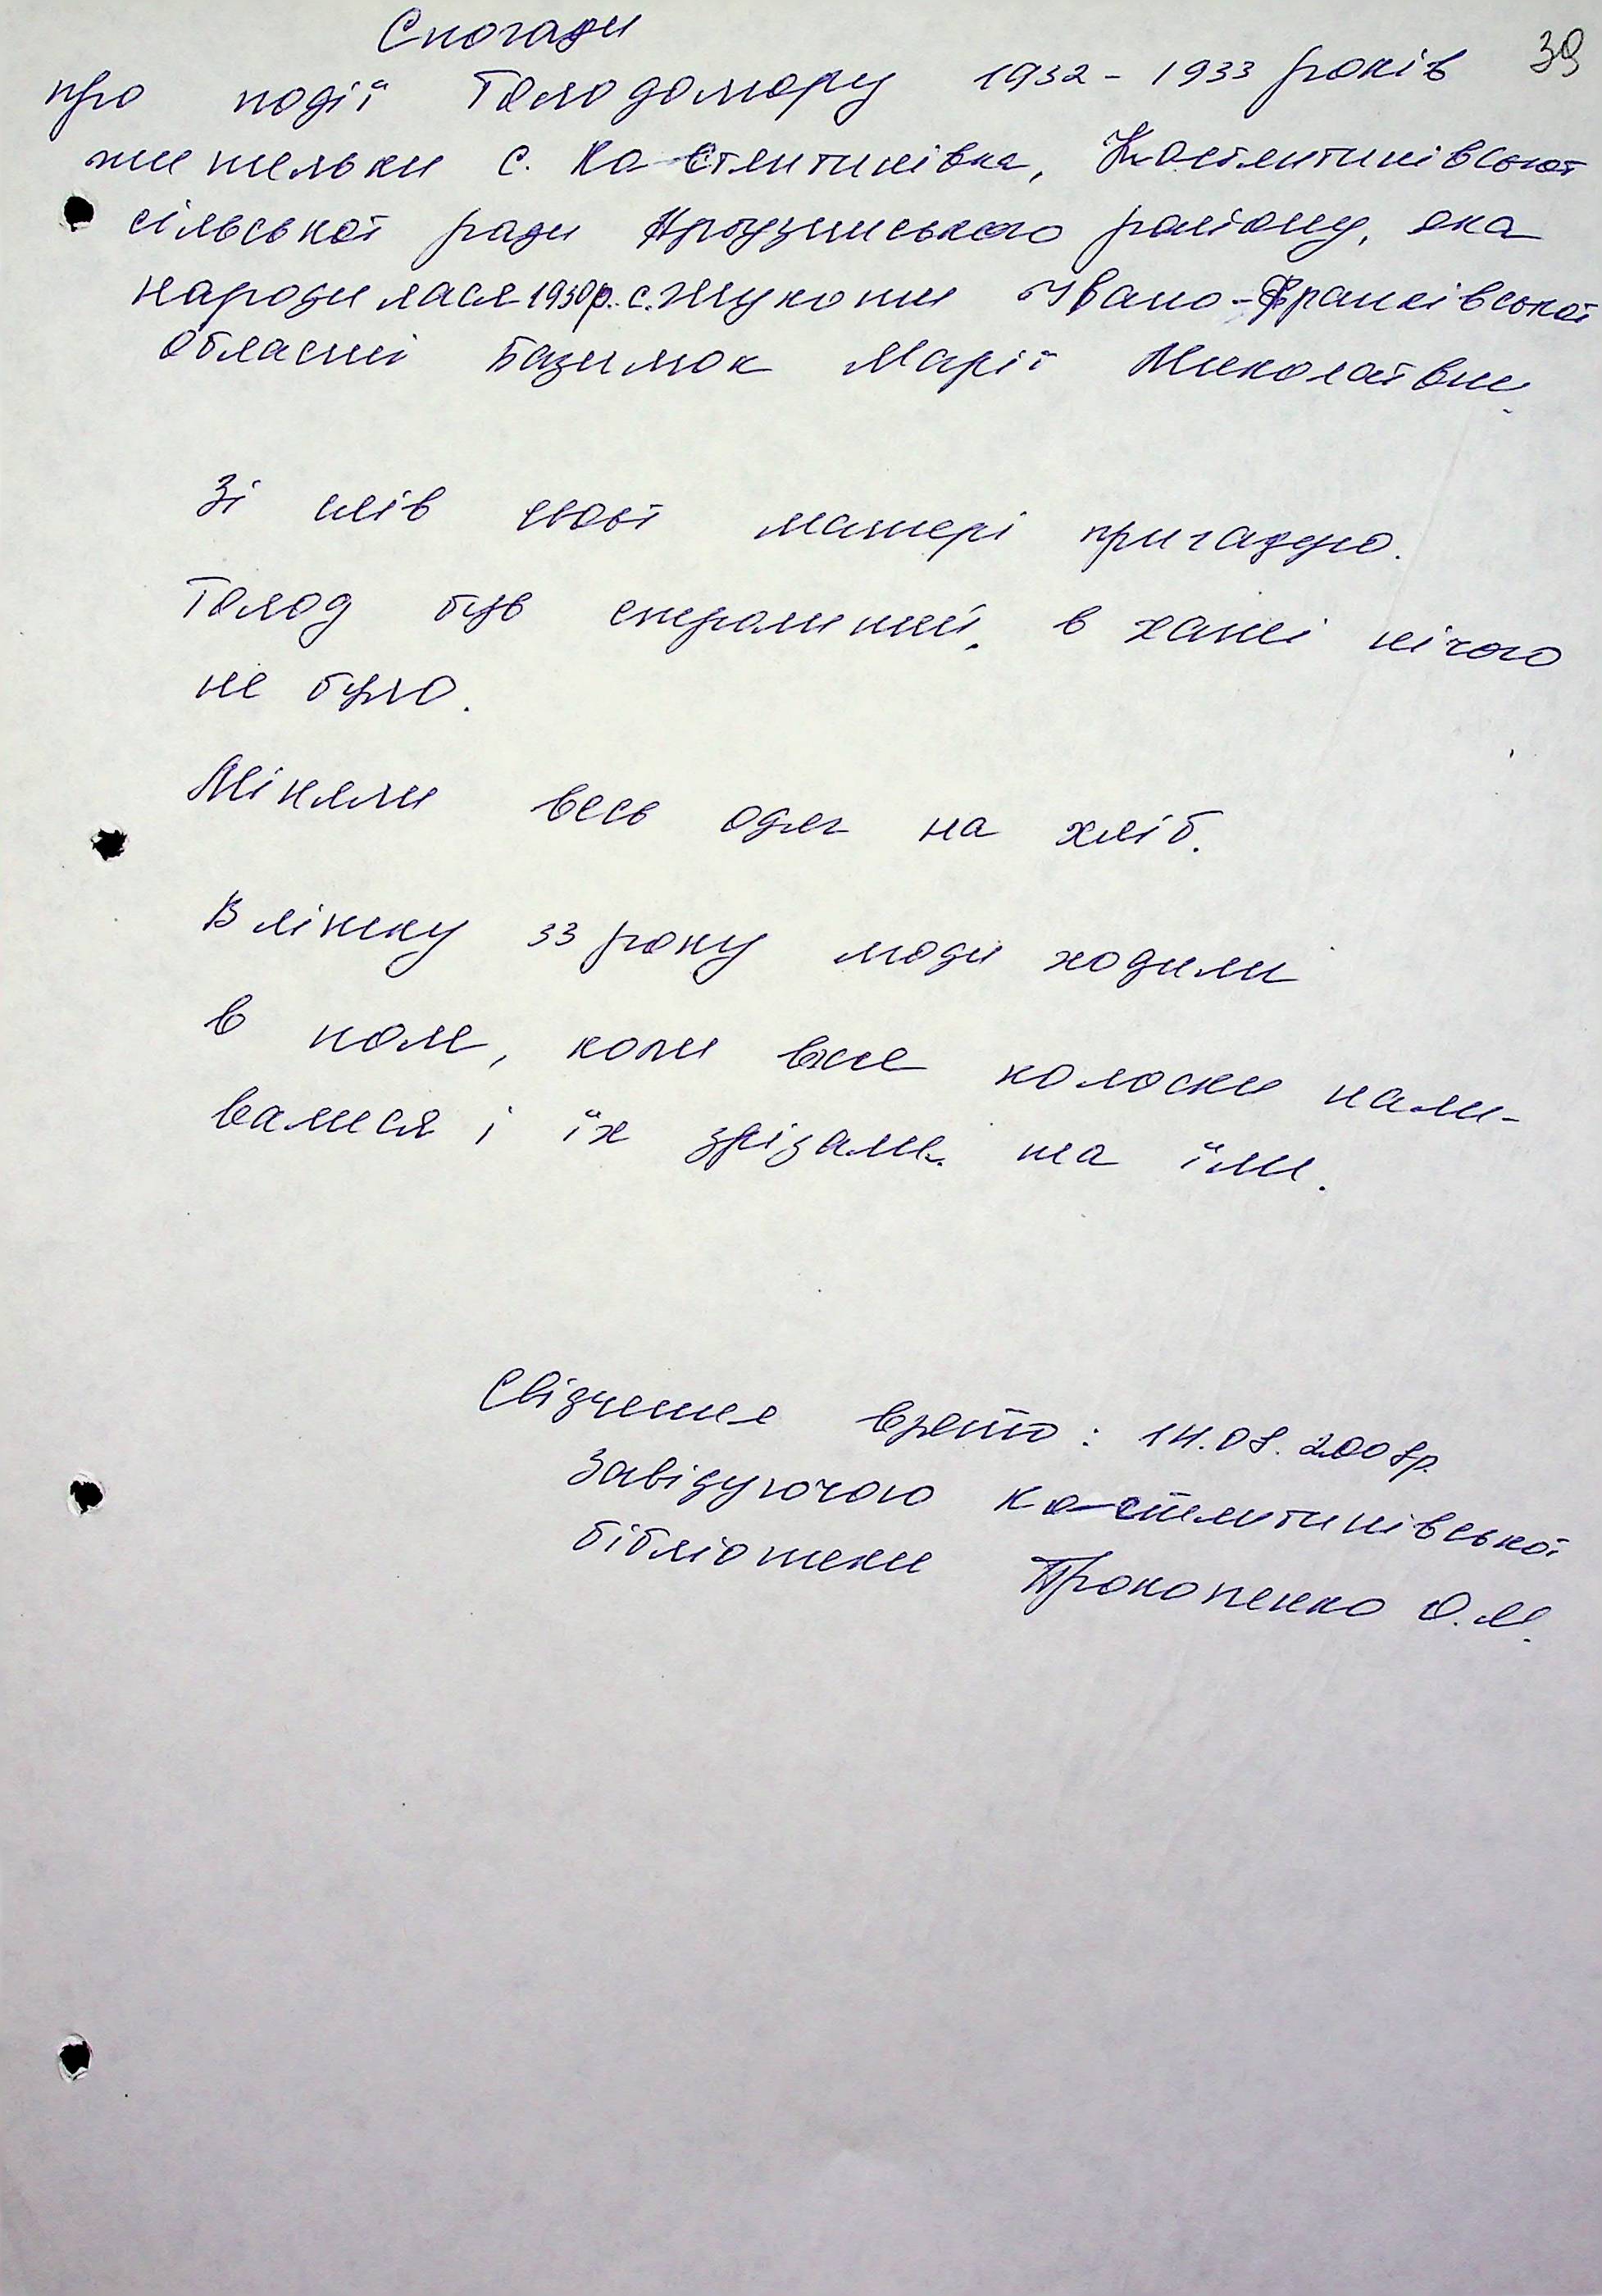 Спогади
39
про події Голодомору 1932-1933 років
жительки с. Костянтинівка, Костянтинівської
сільської ради Арбузинського району, яка
народилася 1930р. с. Жукоти Івано-Франківської
області Базимок Марії Миколаївни.
Зі слів своєї матері пригадую.
Голод був страшний, в хаті нічого
не було.
Міняли весь одяг на хліб.
Влітку 33 року люди ходили
в поле, коли вже колоски нали-
валися і їх зрізали та їли.
Свідчення взято: 14.08.2008р.
Завідуючою Костянтинівської
бібліотеки Прокопенко О.М.